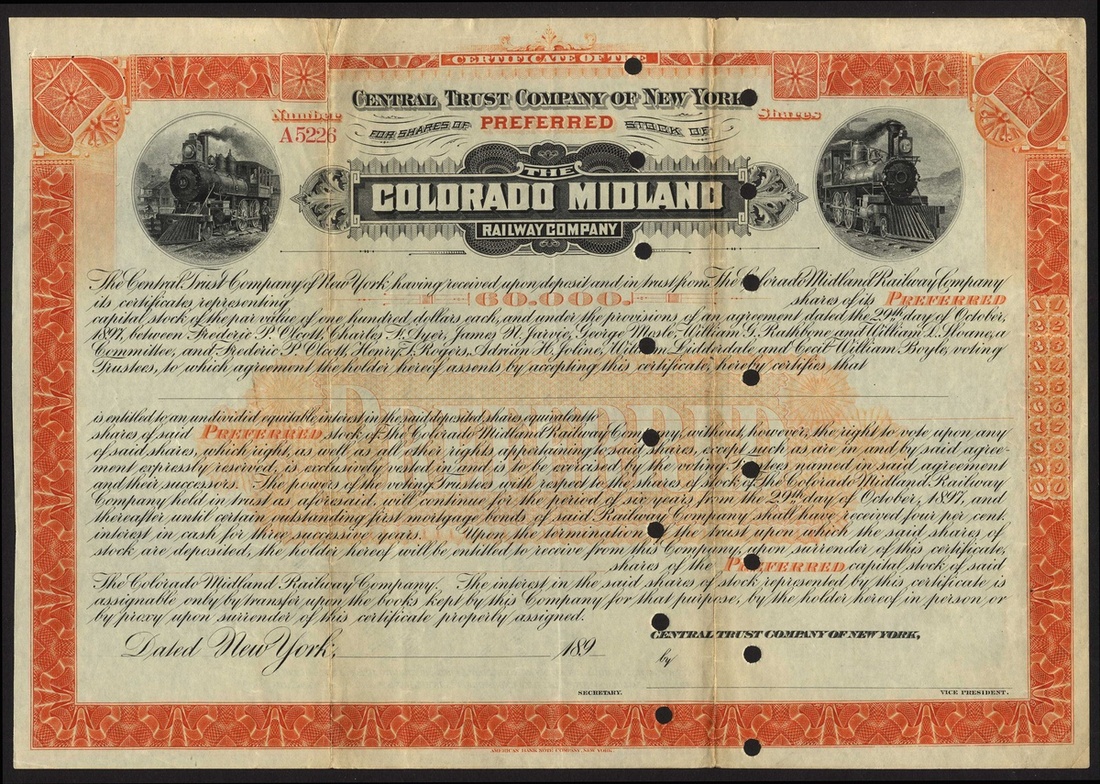 CERTIFICATE OF THE
CENTRAL TRUST COMPANY OF NEW YORK
Number
Shares
A5226
FOR SHARES OF PREFERRED STOCK OF
THE
COLORADO MIDLAND
RAILWAY COMPANY
The Central Trust Company of New York having received upon deposit and in trust from The Colorado Midland Railway Company
its certificates representing 60.000. shares of its PREFERRED
capital stock of the par value of one hundred dollars each, and under the provisions of an agreement dated the 29th day of October,
1897, between Frederic P. Olcott, Charles F. Ayer, James N. Jarvie, George Mosle, William G. Rathbone and William L. Sloane, a
Committee, and Frederic P. Olcott, Henry T. Rogers, Adrian H. Joline, William Lidderdale and Cecil William Boyle, voting
Trustees, to which agreement the holder hereof assents by accepting this certificate, hereby certifies that
PREFERRED
is entitled to an undividid equitable interest in the said deposited shares equivalent to
shares of said PREFERRED stock of The Colorado Midland Railway Company, without, however, the right to vote upon any
of said shares, which right, as well as all other rights appertaining to said shares, except such as are in and by said agree-
ment expressly reserved, is exclusively vested in and is to be exercised by the voting Trustees named in said agreement
and their successors. The powers of the voting Trustees with respect to the shares of stock of The Colorado Midland Railway
Company held in trust as aforesaid, will continue for the period of six years from the 29th day of October, 1897, and
thereafter until certain outstanding first mortgage bonds of said Railway Company shall have received four per cent.
interest in cash for three successive years. Upon the termination of the trust upon which the said shares of
stock are deposited, the holder hereof will be entitled to receive from this Company, upon surrender of this certificate,
shares of the PREFERRED capital stock of said
The Colorado Midland Railway Company. The interest in the said shares of stock represented by this certificate is
assignable only by transfer upon the books kept by this Company for that purpose, by the holder hereof in person or
by proxy upon surrender of this certificate properly assigned.
Dated New York, 189
CENTRAL TRUST COMPANY OF NEW YORK,
by
SECRETARY.
VICE PRESIDENT.
AMERICAN BANK NOTE COMPANY, NEW YORK.